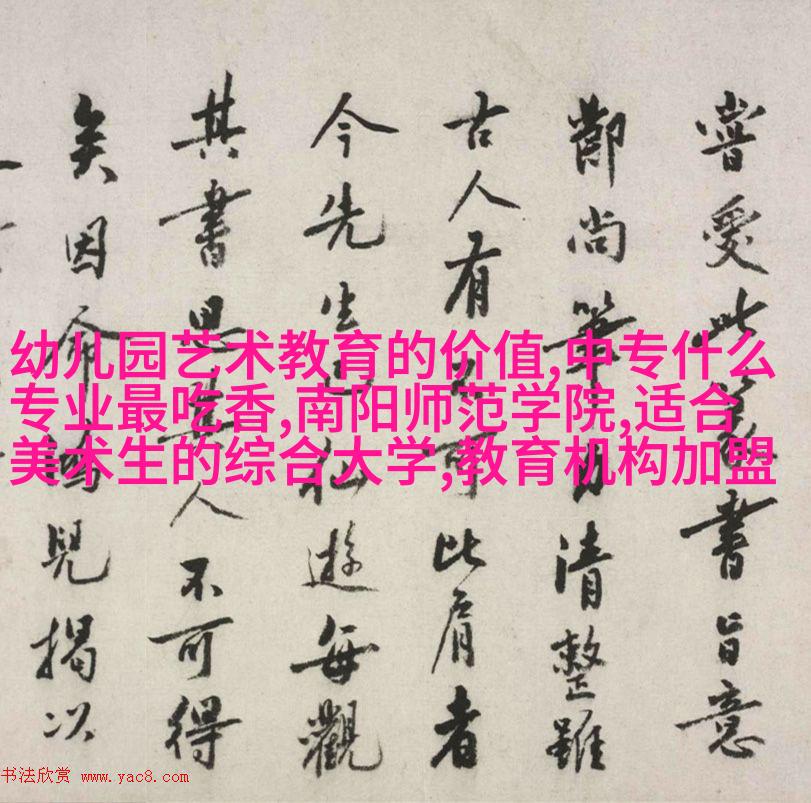 嘗愛此篆書旨意
鄧尚筆力清整雖
古人有不可比肩者
今先生已仙遊每觀
其書思其人不可得
矣因俞陽兒揭以
幼儿园艺术教育的价值,中专什么
专业最吃香,南阳师范学院,适合
美术生的综合大学,教育机构加盟
书法欣赏 www.yac8.com